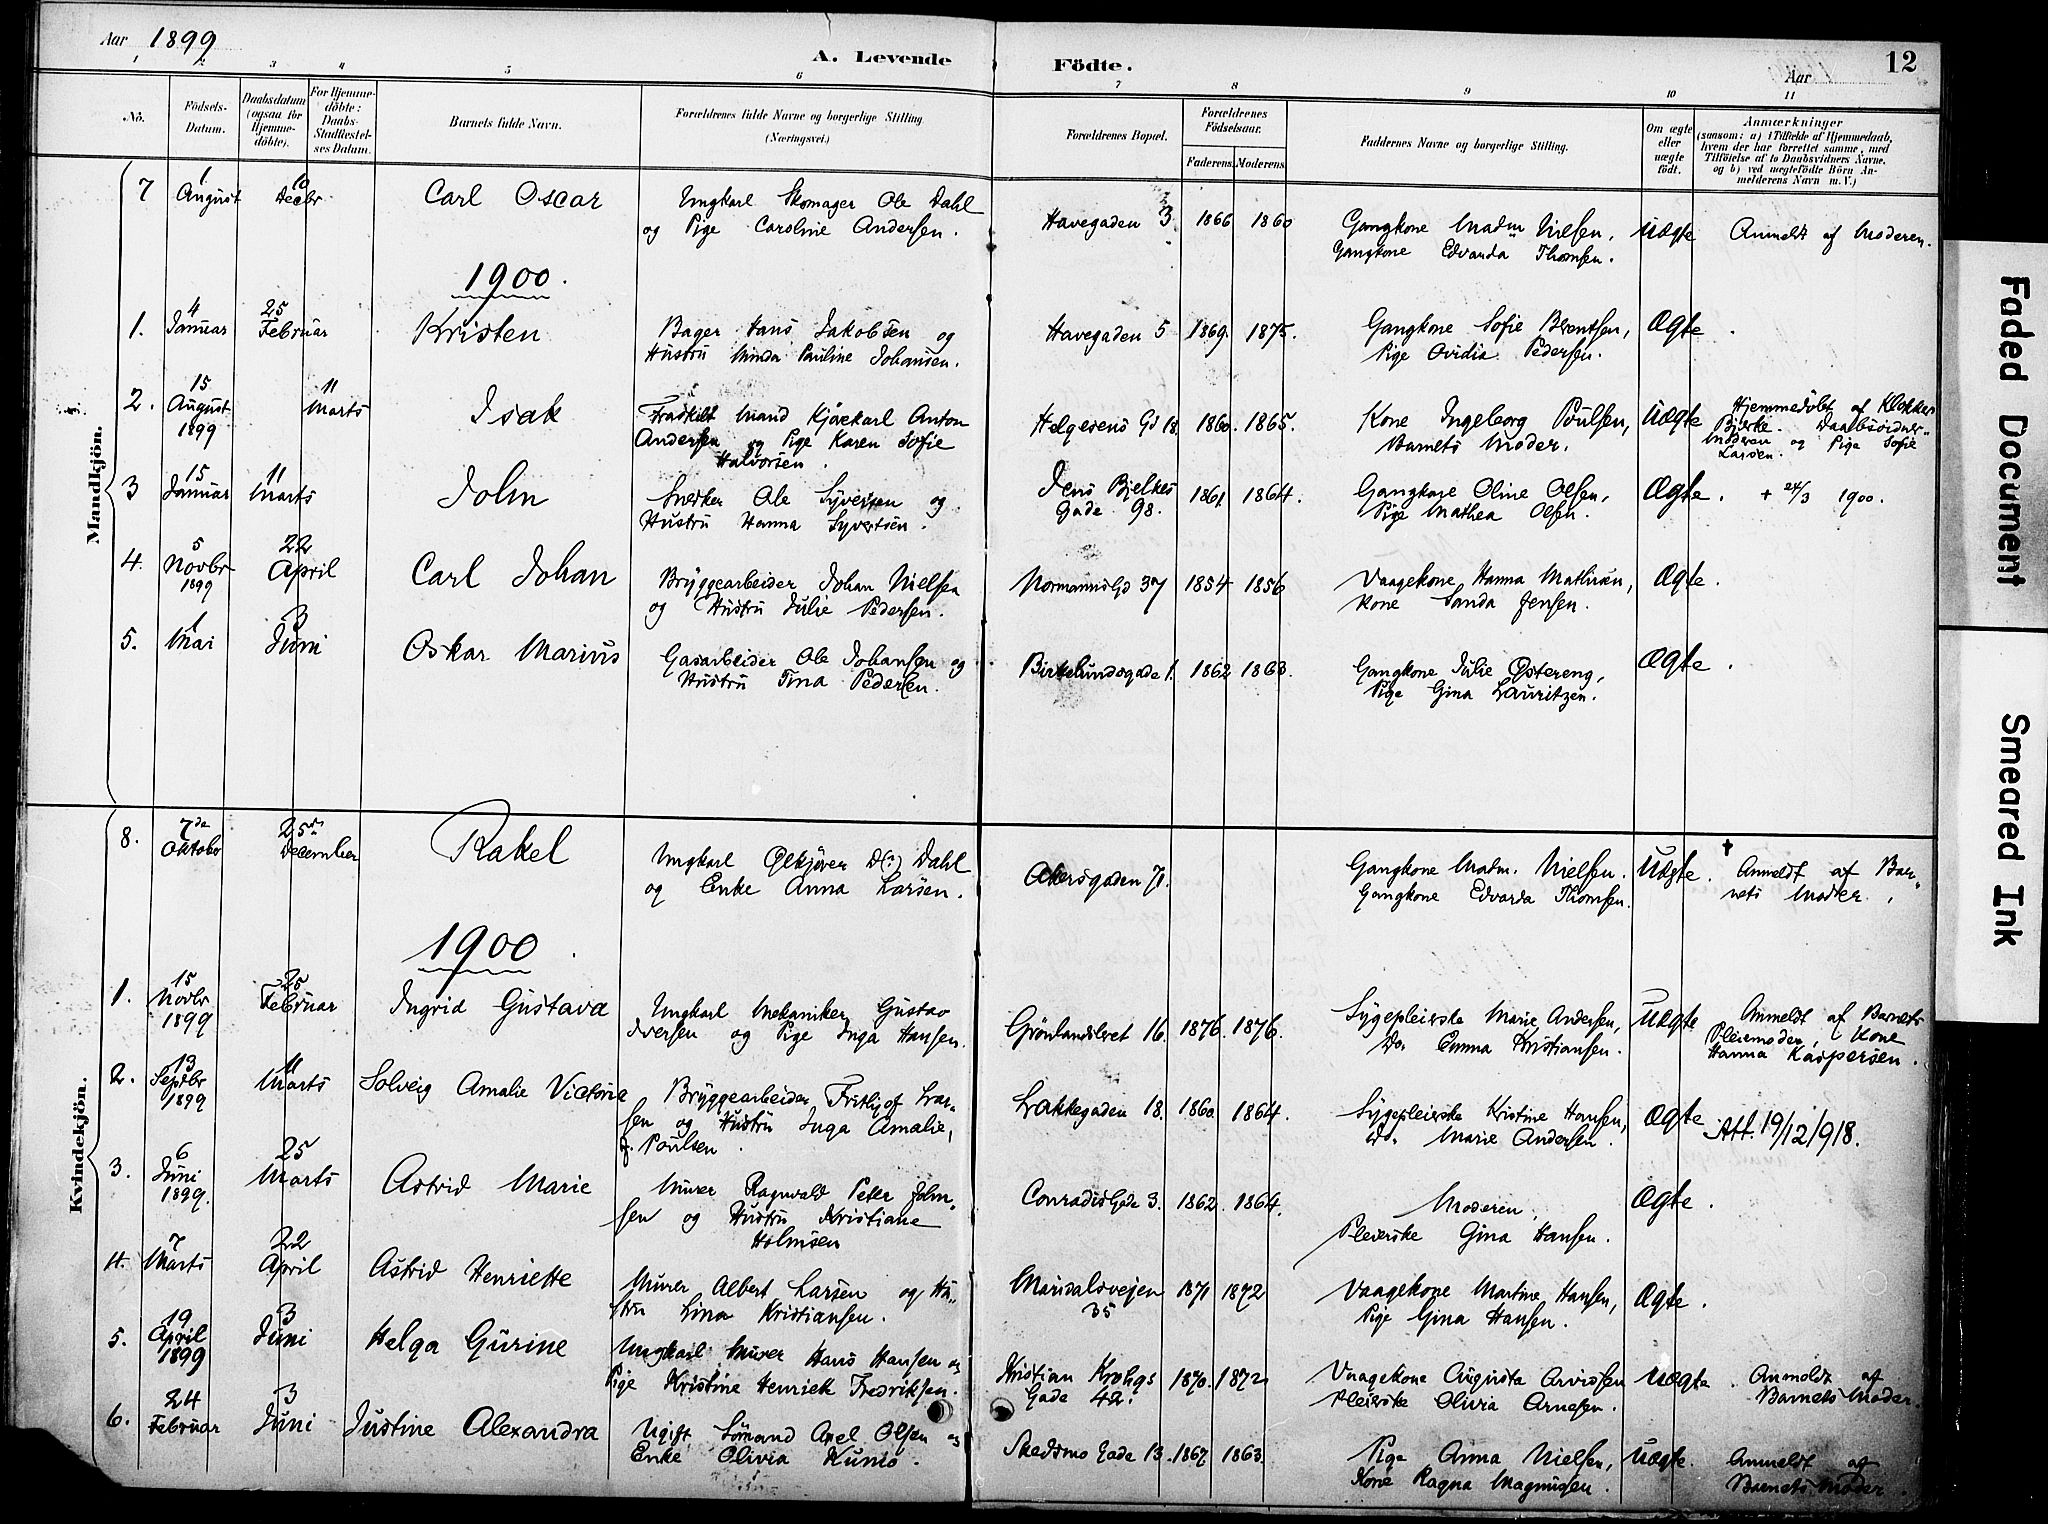 Aar 1899
A. Levende Födte.
Aar
12
1 2 3 4 5 6 7 8 9 10 11
No.
Födsels-Datum.
Daabsdatum (ogsaa for Hjemme-döbte).
For Hjemme-döbte: Daabs-Stadfæstel-ses Datum.
Barnets fulde Navn.
Forældrenes fulde Navne og borgerlige Stilling (Næringsvei.)
Forældrenes Bopæl.
Forældrenes Födselsaar.
Faderens. Moderens.
Faddernes Navne og borgerlige Stilling.
Om ægte eller uægte födt.
Anmærkninger
(saasom: a) i Tilfælde af Hjemmedaab, hvem der har forrettet samme, med Tilföielse af to Daabsvidners Navne, og b) ved uægtefödte Börn An-melderens Navn m. V.)
Mandkjön.
7 1 August 10 Decbr Carl Oscar
Ungkarl Skomager Ole Dahl
og Pige Caroline Andersen.
Havegaden 3 1866 1860
Gangkone Madm Nielsen,
Gangkone Edvarda Thomsen.
Uægte Anmeldt af Moderen.
1900.
1. 4 Januar 25 Februar Kristen
Bager Hans Jakobsen og
Hustru Minda Pauline Johansen.
Havegaden 5 1869. 1875.
Gangkone Sofie Berentsen,
Pige Ovidia Pedersen.
Ægte.
2. 15 August 1899 11 Marts Isak
Fraskilt Mand Kjørekarl Anton
Andersen og Pige Karen Sofie
Halvorsen.
Helgesens Gd 18. 1860. 1865.
Kone Ingeborg Poulsen,
Barnets Moder.
Uægte
Hjemmedöbt af Klokker
Bjerke. Daabsvidner
Moderen og Pige Sofie
Larsen.
3 15 Januar 11 Marts John
Snedker Ole Syversen og
Hustru Hanna Syvertsen.
Jens Bjelkes
Gade 98. 1861. 1864.
Gangkone Oline Olsen,
Pige Mathea Olsen.
Ægte. + 24/3 1900.
4. 5 Novbr 1899 22 April Carl Johan
Bryggearbeider Johan Nielsen
og Hustru Julie Pedersen.
Normannsgd 37 1854 1856
Vaagekone Hanna Mathisen,
Kone Sanda Jensen.
Ægte.
5. 1 Mai 3 Juni Oskar Marius
Gasarbeider Ole Johansen og
Hustru Tina Pedersen.
Birkelundsgade 1. 1862 1863.
Gangkone Julie Østereng,
Pige Gina Lauritzen.
Ægte.
Kvindekjön.
8. 7de Oktober 25de December Rakel
Ungkarl Ølkjører D(?) Dahl
og Enke Anna Larsen.
Akersgaden 71.
Gangkone Madm. Nielsen.
Gangkone Edvarda Thomsen.
Uægte. † Anmeldt af Bar-
nets Moder.
1900.
1. 15 Novbr 1899 25 Februar Ingrid Gustava
Ungkarl Mekaniker Gustav
Iversen og Pige Inga Hansen.
Grönlandsleret 16. 1876. 1876.
Sygepleierske Marie Andersen,
Do. Emma Kristiansen.
Uægte
Anmeldt af Barnets
Pleiemoder, Kone
Hanna Kaspersen.
2. 13 Septbr 1899 11 Marts Solveig Amalie Victoria
Bryggearbeider Frithjof Lar-
sen og Hustru Inga Amalie,
f. Poulsen.
Lakkegaden 18. 1860. 1864.
Sygepleierske Kristine Hansen,
Do. Marie Andersen.
Ægte Att. 19/12/918.
3. 6 Juni 1899. 25 Marts Astrid Marie
Murer Ragnvald Peter John-
sen og Hustru Kristiane
Holmsen
Conradis Gade 3. 1862. 1864.
Moderen,
Pleierske Gina Hansen.
Ægte.
4. 7 Marts 22 April Astrid Henriette
Murer Albert Larsen og Hu-
stru Lina Kristiansen.
Maridalsvejen
35 1871 1872
Vaagekone Martine Hansen,
Pige Gina Hansen.
Ægte.
5. 19 April 1899 3 Juni Helga Gurine
Ungkarl Murer Hans Hansen og
Pige Kristine Henriette Fredriksen.
Kristian Krohgs
Gade 42. 1870. 1872
Vaagekone Augusta Arvidsen
Pleierske Olivia Arnesen.
Uægte. Anmeldt af
Barnets Moder.
6. 24 Februar 3 Juni Justine Alexandra
Ugift Sømand Axel Olsen og
Enke Olivia Kunio.
Skedsmo Gade 13. 1867. 1863.
Pige Anna Nielsen,
Kone Ragna Magnusen.
Uægte. Anmeldt af
Barnets Moder.
Faded Document
Smeared Ink